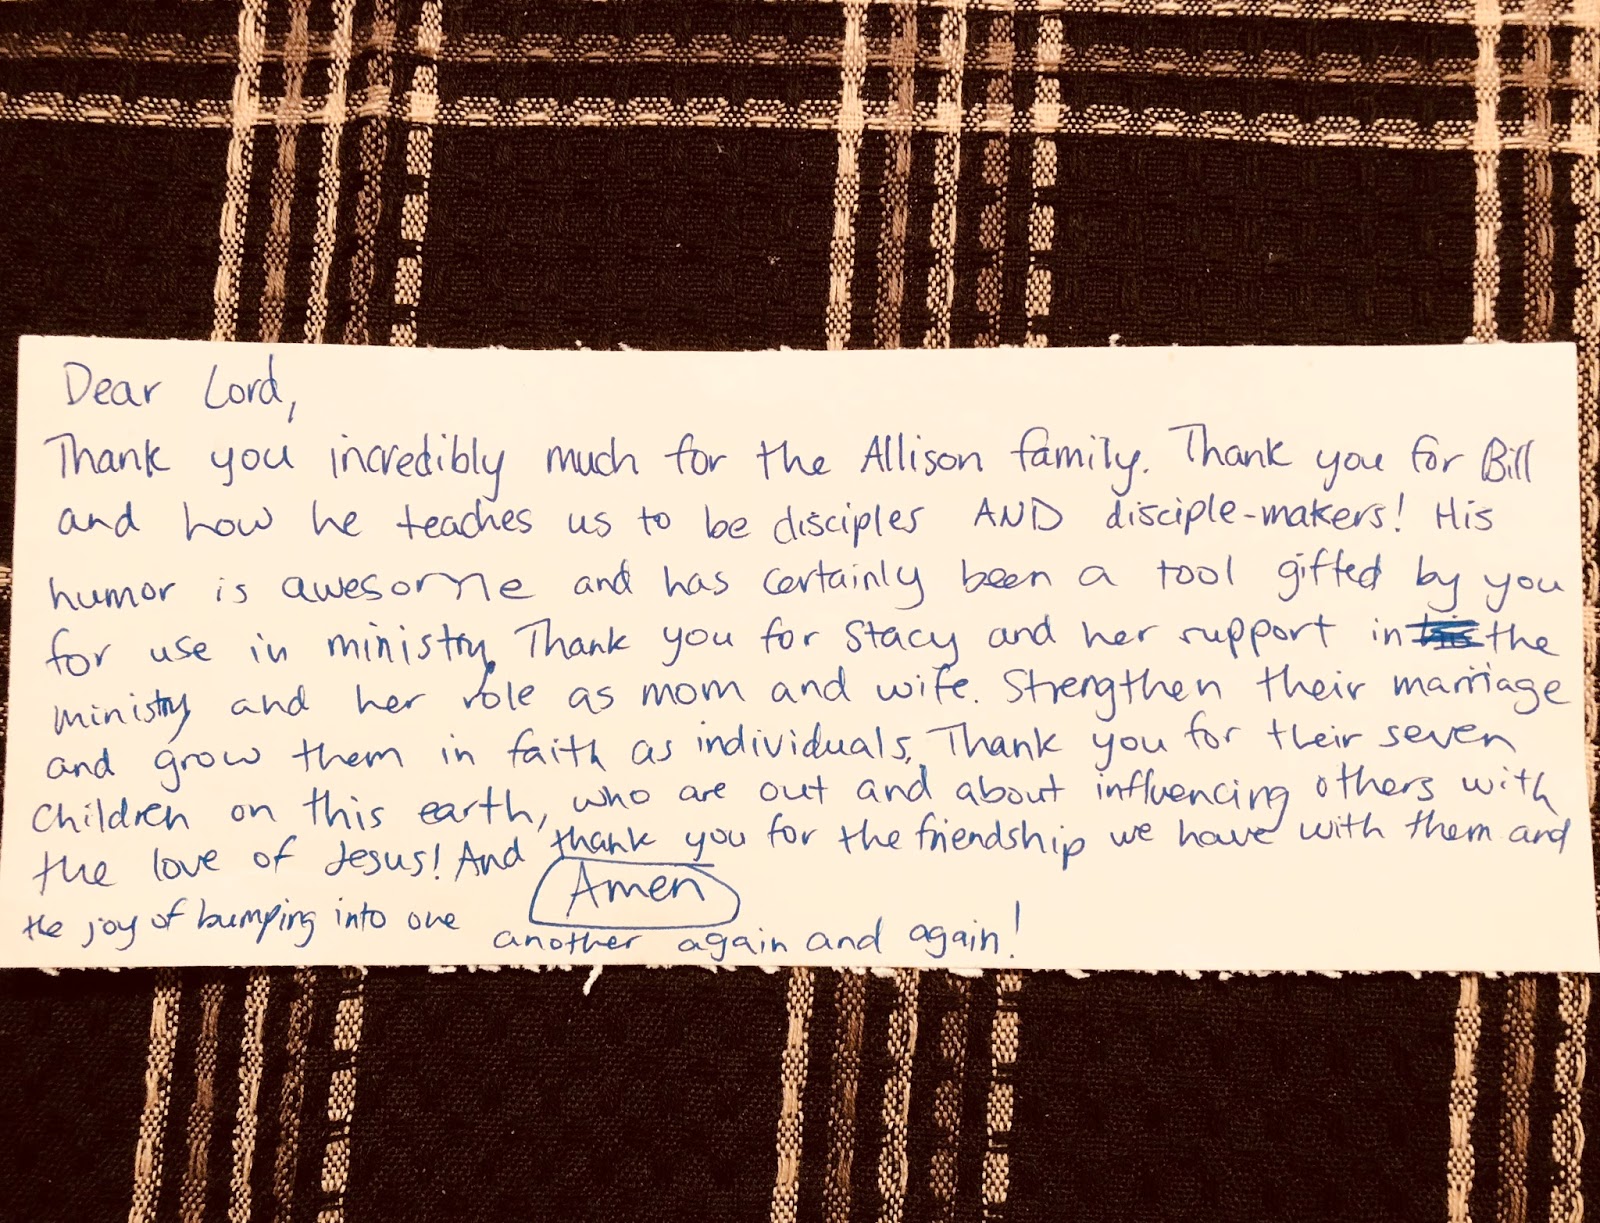 Dear Lord,
Thank you incredibly much for the Allison family. Thank you for Bill
and how he teaches us to be disciples AND disciple-makers! His
humor is awesome and has certainly been a tool gifted by you
for use in ministry. Thank you for Stacy and her support in the
ministry and her role as mom and wife. Strengthen their marriage
and grow them in faith as individuals. Thank you for their seven
children on this earth, who are out and about influencing others with
the love of Jesus! And thank you for the friendship we have with them and
the joy of bumping into one another again and again!
Amen